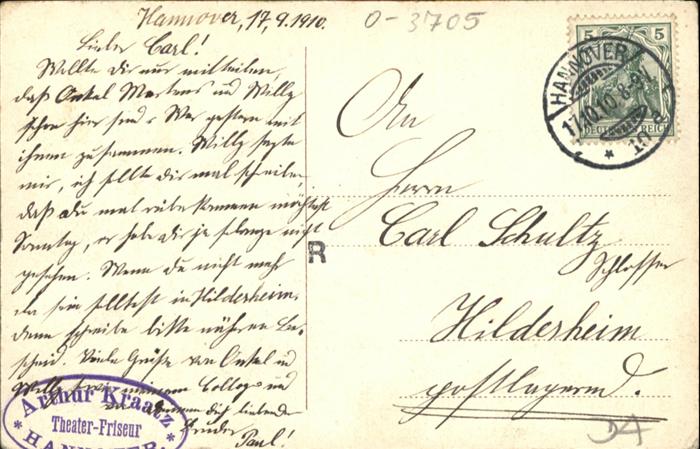 Hannover, 17.9.1910.
O-3705
Lieber Carl!
Wollte Dir nur mitteilen,
daß Onkel Martens und Willy
schon hier sind. War gestern mit
ihnen zusammen. Willy sagte
mir, ich sollte dir mal schreiben,
daß du mal rüberkommen möchtest
Sonntag, er habe dich ja so lange nicht
gesehen. Wenn du nicht mehr
da sein solltest in Hildesheim,
dann schreibe bitte näheren Be-
scheid. Viele Grüße von Onkel und
Willy meinem Colleg und
Dich liebender
Bruder
Paul!
Arthur Kraatz
Theater-Friseur
* HANNOVER. *
R
5 5
DEUTSCHES REICH
HANNOVER
17.10.10. 8-9V.
* 10 g
An
Herrn
Carl Schultz
Schlosser
Hildesheim
postlagernd.